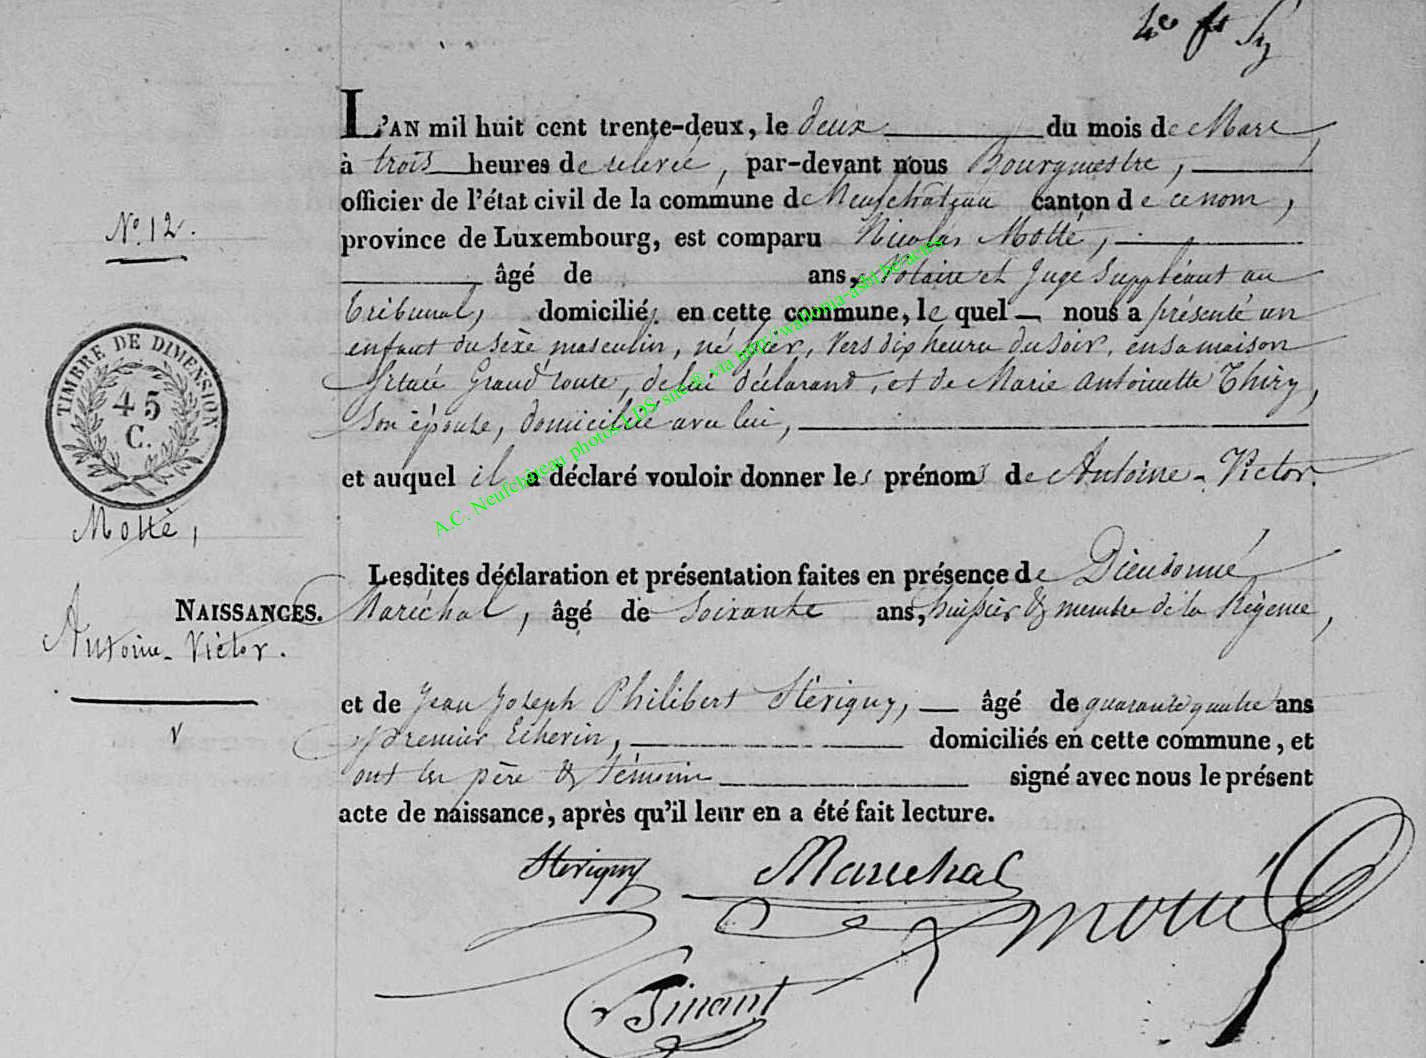 4e
L'AN mil huit cent trente-deux, le deux du mois de Mars
à trois heures de relevée, par-devant nous Bourgmestre,
officier de l'état civil de la commune de Neufchâteau canton de ce nom,
N° 12.
province de Luxembourg, est comparu Nicolas Motté,
âgé de ans, Notaire et Juge Suppléant au
Tribunal, domicilié en cette commune, le quel nous a présenté un
enfant du sèxe masculin, né hier, vers dix heures du soir, en sa maison
située Grand'route, de lui déclarant, et de Marie Antoinette Thiry,
son épouse, domiciliée avec lui,
TIMBRE DE DIMENSION
45
C.
et auquel il a déclaré vouloir donner les prénoms de Antoine-Victor.
A.C. Neufchâteau photos LDS via http://wallonia-asbl.be/actes
Motté,
Lesdites déclaration et présentation faites en présence de Dieudonné
NAISSANCES. Maréchal, âgé de soixante ans, huissier & membre de la Régence,
Antoine-Victor.
et de Jean Joseph Philibert Stévigny, âgé de quarante quatre ans
premier Echevin, domiciliés en cette commune, et
ont les père & témoins signé avec nous le présent
acte de naissance, après qu'il leur en a été fait lecture.
Stévigny Marechal
Motté
Dinant